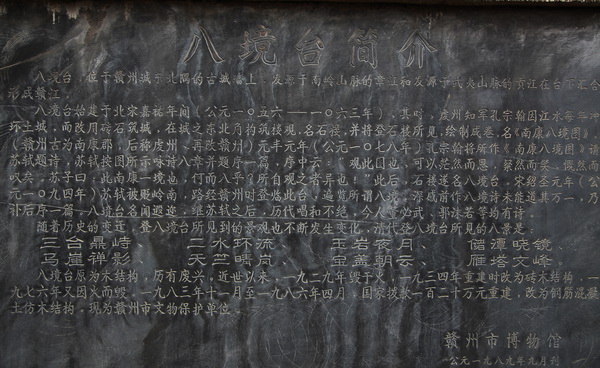 八境台简介
八境台，位于赣州城东北隅的古城墙上，发源于南岭山脉的章江和发源于武夷山脉的贡江在台下汇合
形成赣江。
八境台始建于北宋嘉祐年间（公元一〇五六——一〇六三年），其时，虔州知军孔宗翰因江水每年冲
环土城，而改用砖石筑城，在城之东北角构筑楼观，名石楼，并将登石楼所见，绘制成卷，名《南康八境图》，
（赣州古为南康郡，后称虔州）元丰元年（公元一〇七八年），孔宗翰将所作《南康八境图》请
苏轼题诗，苏轼按图所示咏诗八章并题序一篇，序中云：“此南康之
叹矣，苏子曰：此南康一境也，何从而八乎？所自观之者异也。”此后，石楼遂名八境台，宋绍圣元年（公
元一〇九四年）苏轼被贬岭南，路经赣州时，登此台，遍览所谓八境，深感前作八境诗未能道其万一，乃
补后序一篇。八境台名闻遐迩，继苏轼之后，历代唱和不绝，今人
随着历史的变迁，登八境台所见到的景观也不断发生变化，清代登八境台所见的八景是：
三台鼎峙、二水环流、玉岩夜月、储潭晓镜、
马崖禅影、天竺晴岚、宝盖朝云、雁塔文峰。
八境台原为木结构，历有废兴，近世以来，一九二九年毁于火，一九三四年重建时改为砖木结构，一
九七六年又因火而毁，一九八三年十一月至一九八六年四月，国家拨款一百二十万元重建，改为钢筋混凝
土仿木结构，现为赣州市文物保护单位。
赣州市博物馆
公元一九八九年九月刊